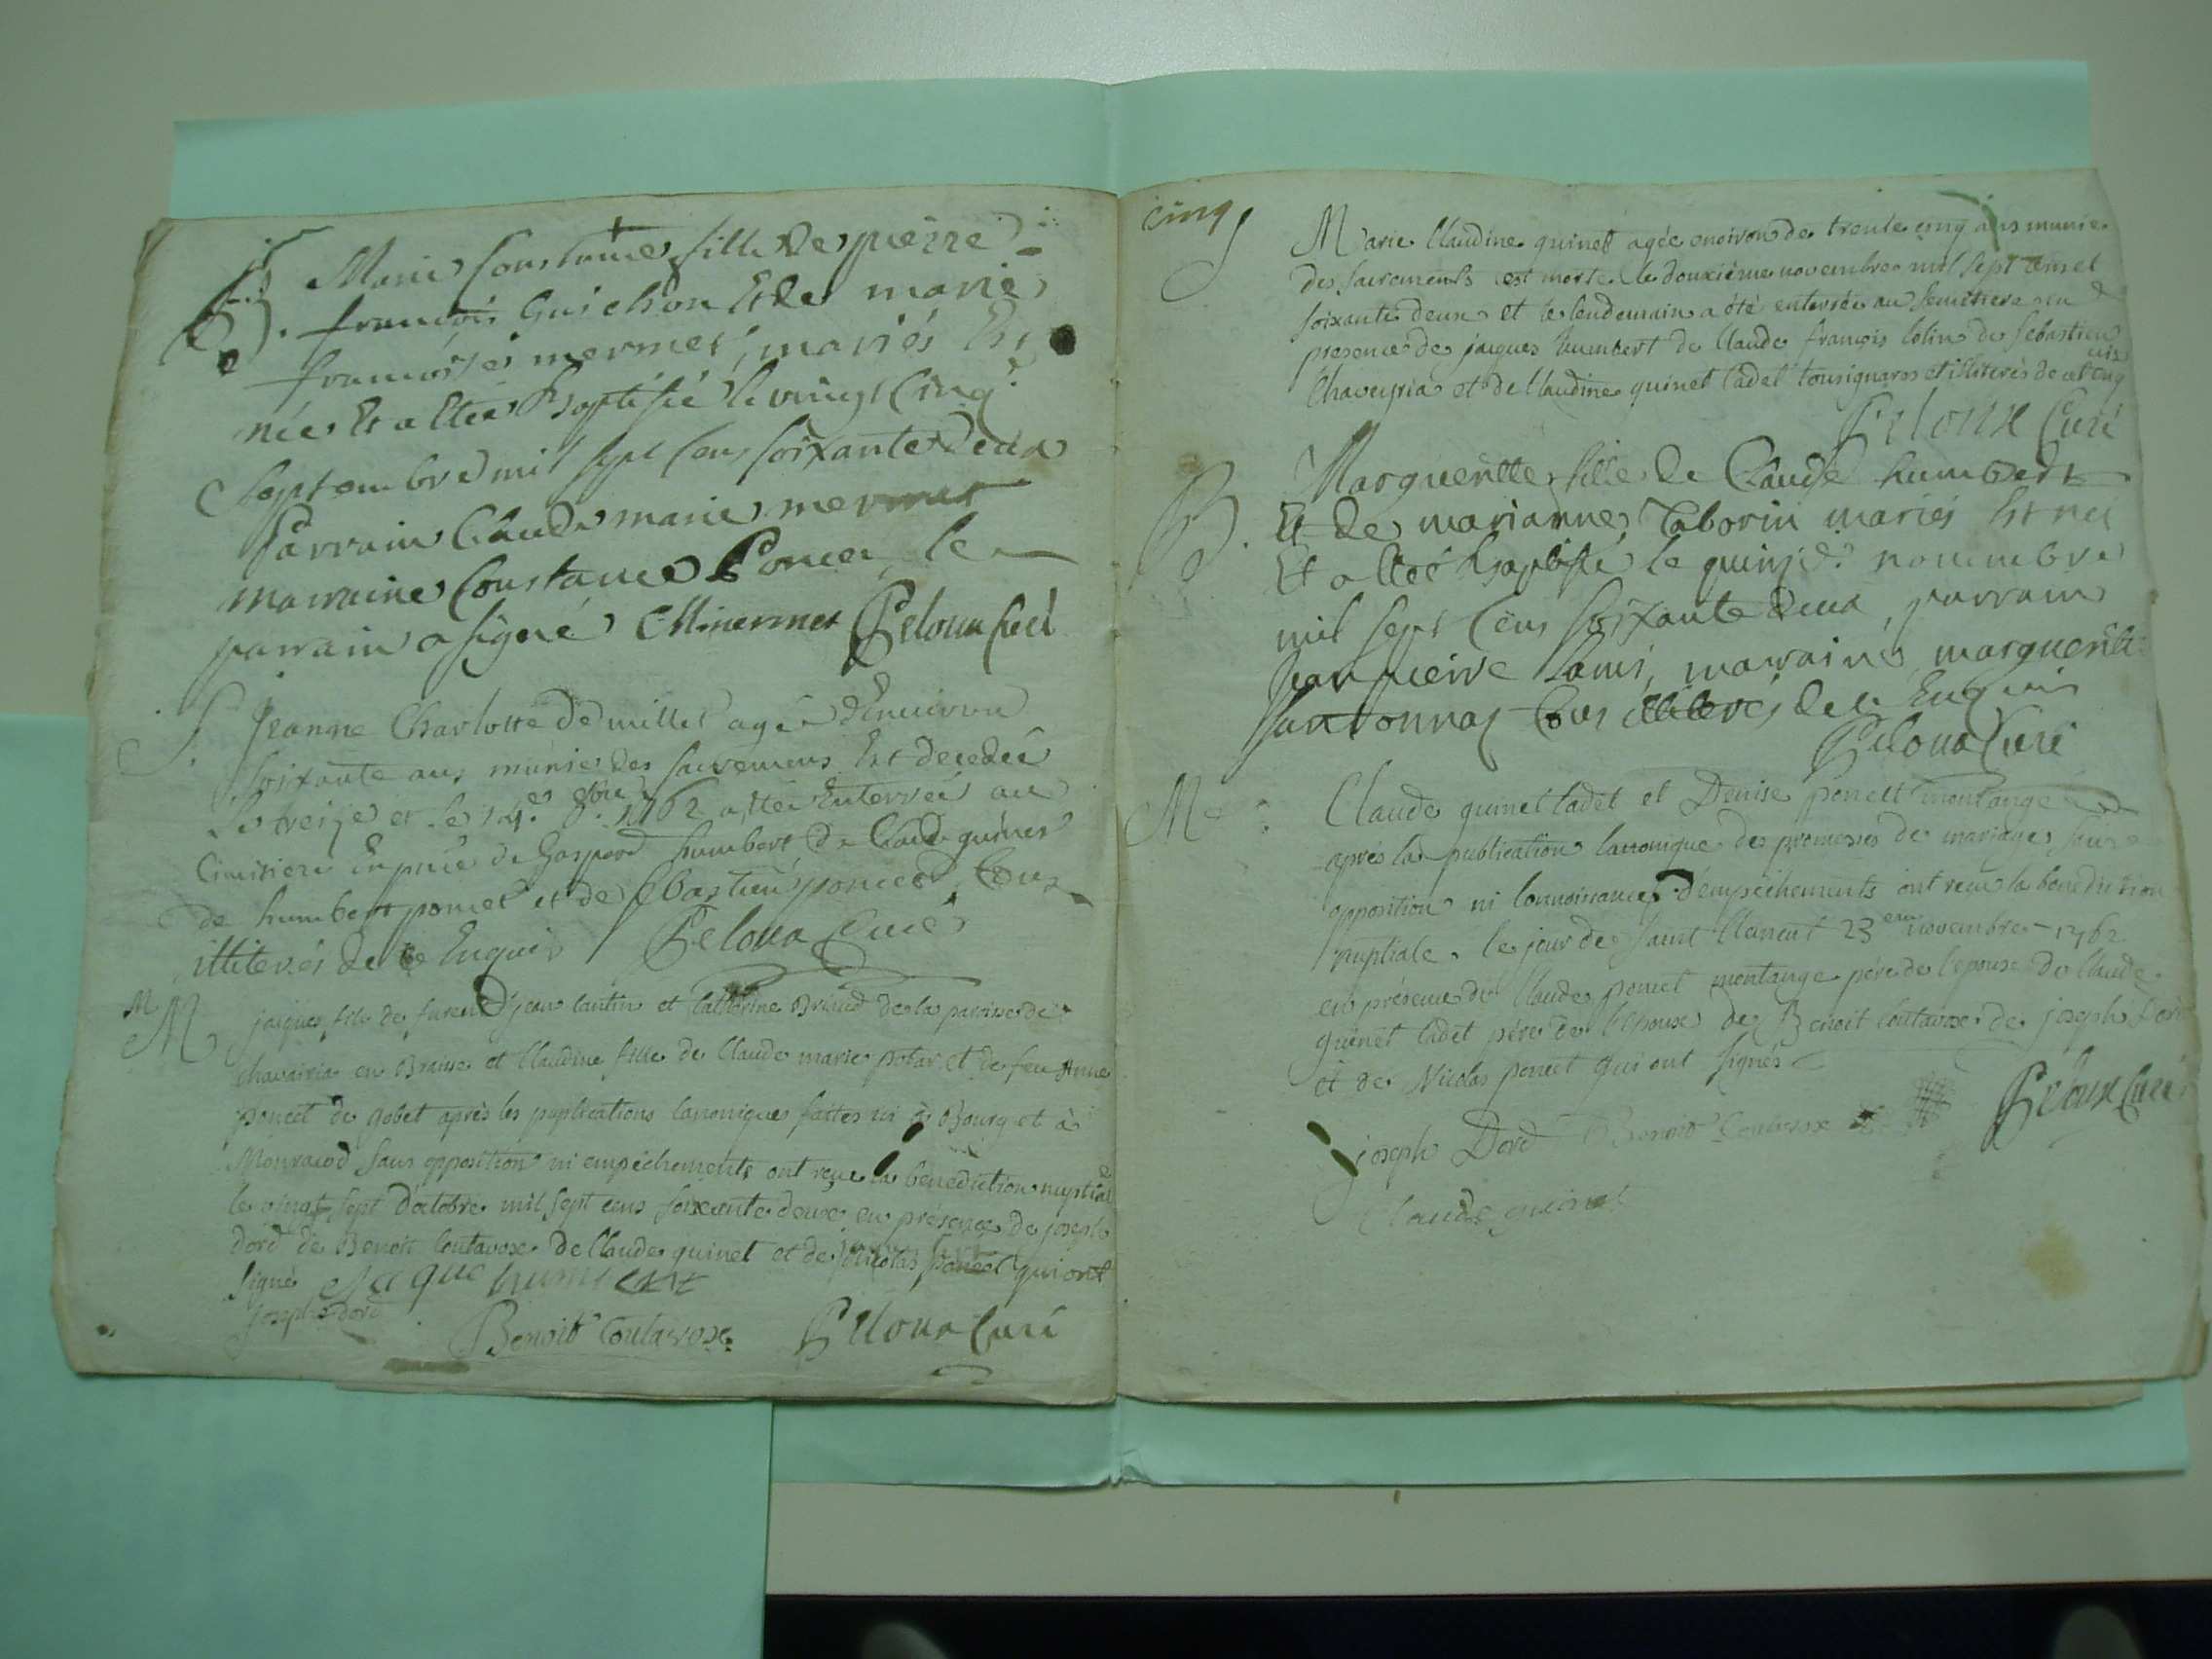 B. Marie Constance fille de pierre
françois Guichon Et de marie
françoise mermet, mariés Est
née Et a Etée Baptisée le vingt Cinq
Septembre mil sept Cens soixante Deux
Parrain Claude marie mermet
marraine Constance Poncet, le
parrain a signé C M mermet Peloux Curé
S. Jeanne Charlotte De millet agée d'Environ
soixante ans munie des sacremens Est decedée
le treize et le 14e 8bre 1762 a été Enterrée au
Cimitiere En pnce de Gaspard humbert de Claude guinet
de humbert poncet et de Sebastien poncet Tous
illiterés de ce Enquis Peloux Curé
M jaques fils de furent jean lantin et Catherine Briend de la paroisse de
chavairia en Braisse et Claudine fille de Claude marie potar et de feu Anne
poncet de gobet après les puplications canoniques faites ici à Bourg et à
Monracod sans opposition ni empêchements ont reçue la benediction nuptiale
le vingt sept d'octobre mil sept cens soixante deux en présence de joseph
dord de Benoit Coutavoxe de Claude quinet et de Nicolas poncet qui ont
signé jaque humbert
joseph dord Benoit Coutavoxe Peloux Curé
cinq
Marie Claudine quinet agée environ de trente cinq ans munie
des sacrements est morte le douxième novembre mil sept cens et
soixante deux et le lendemain a été enterrée au semitiere en
presence de jaques humbert de Claude françois Colin de Sebastien
Chaveyria et de Claudine quinet Cadet tous ignares et illiterés de cet enquis
Peloux Curé
B. Margueritte fille de Claude humbert
Et de marianne Taborin mariés Est née
Et a Etéé Baptisée le quinze novembre
mil sept Cens soixante deux, parrain
jean pierre Lami, marraine marguerite
santonnax Tous illiterés de ce Enquis
Peloux Curé
M Claude quinet Cadet et Denise poncet montange
après la publication Canonique des promesses de mariage sans
opposition ni connoissance d'empêchements ont reçu la benediction
nuptiale le jour de saint Clement 23 eme novembre 1762
en présence de Claude poncet montange père de lepouse de Claude
quinet Cadet père de l'Epoux de Benoit Coutavoxe de joseph Dord
et de Nicolas poncet qui ont signés
joseph Dord Benoit Coutavoxe Peloux Curé
Claude quinet